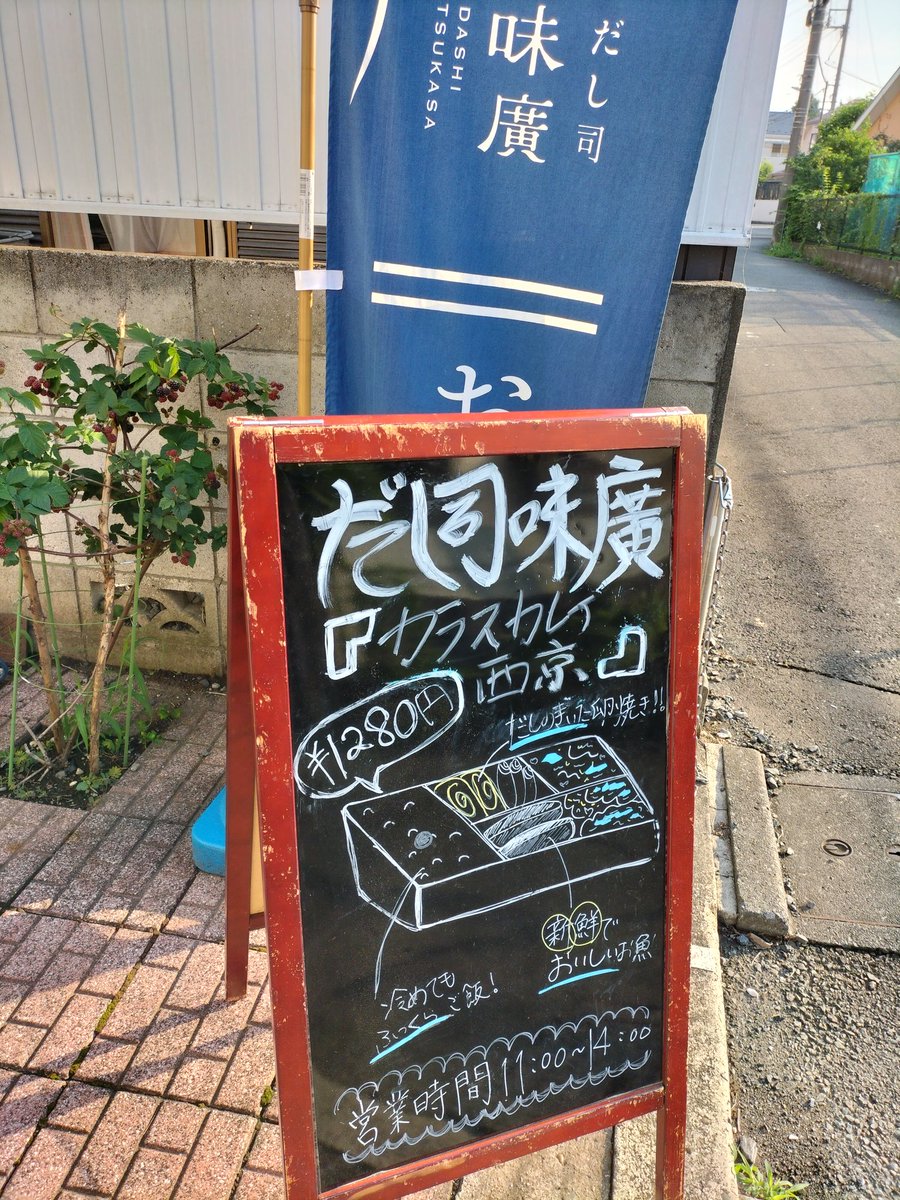 だし司
味廣
DASHI
TSUKASA
お
だし司味廣
『カラスカレイ
西京』
¥1280円
だしのきいた卵焼き!!
新鮮で
おいしいお魚
冷めても
ふっくらご飯!
営業時間11:00~14:00